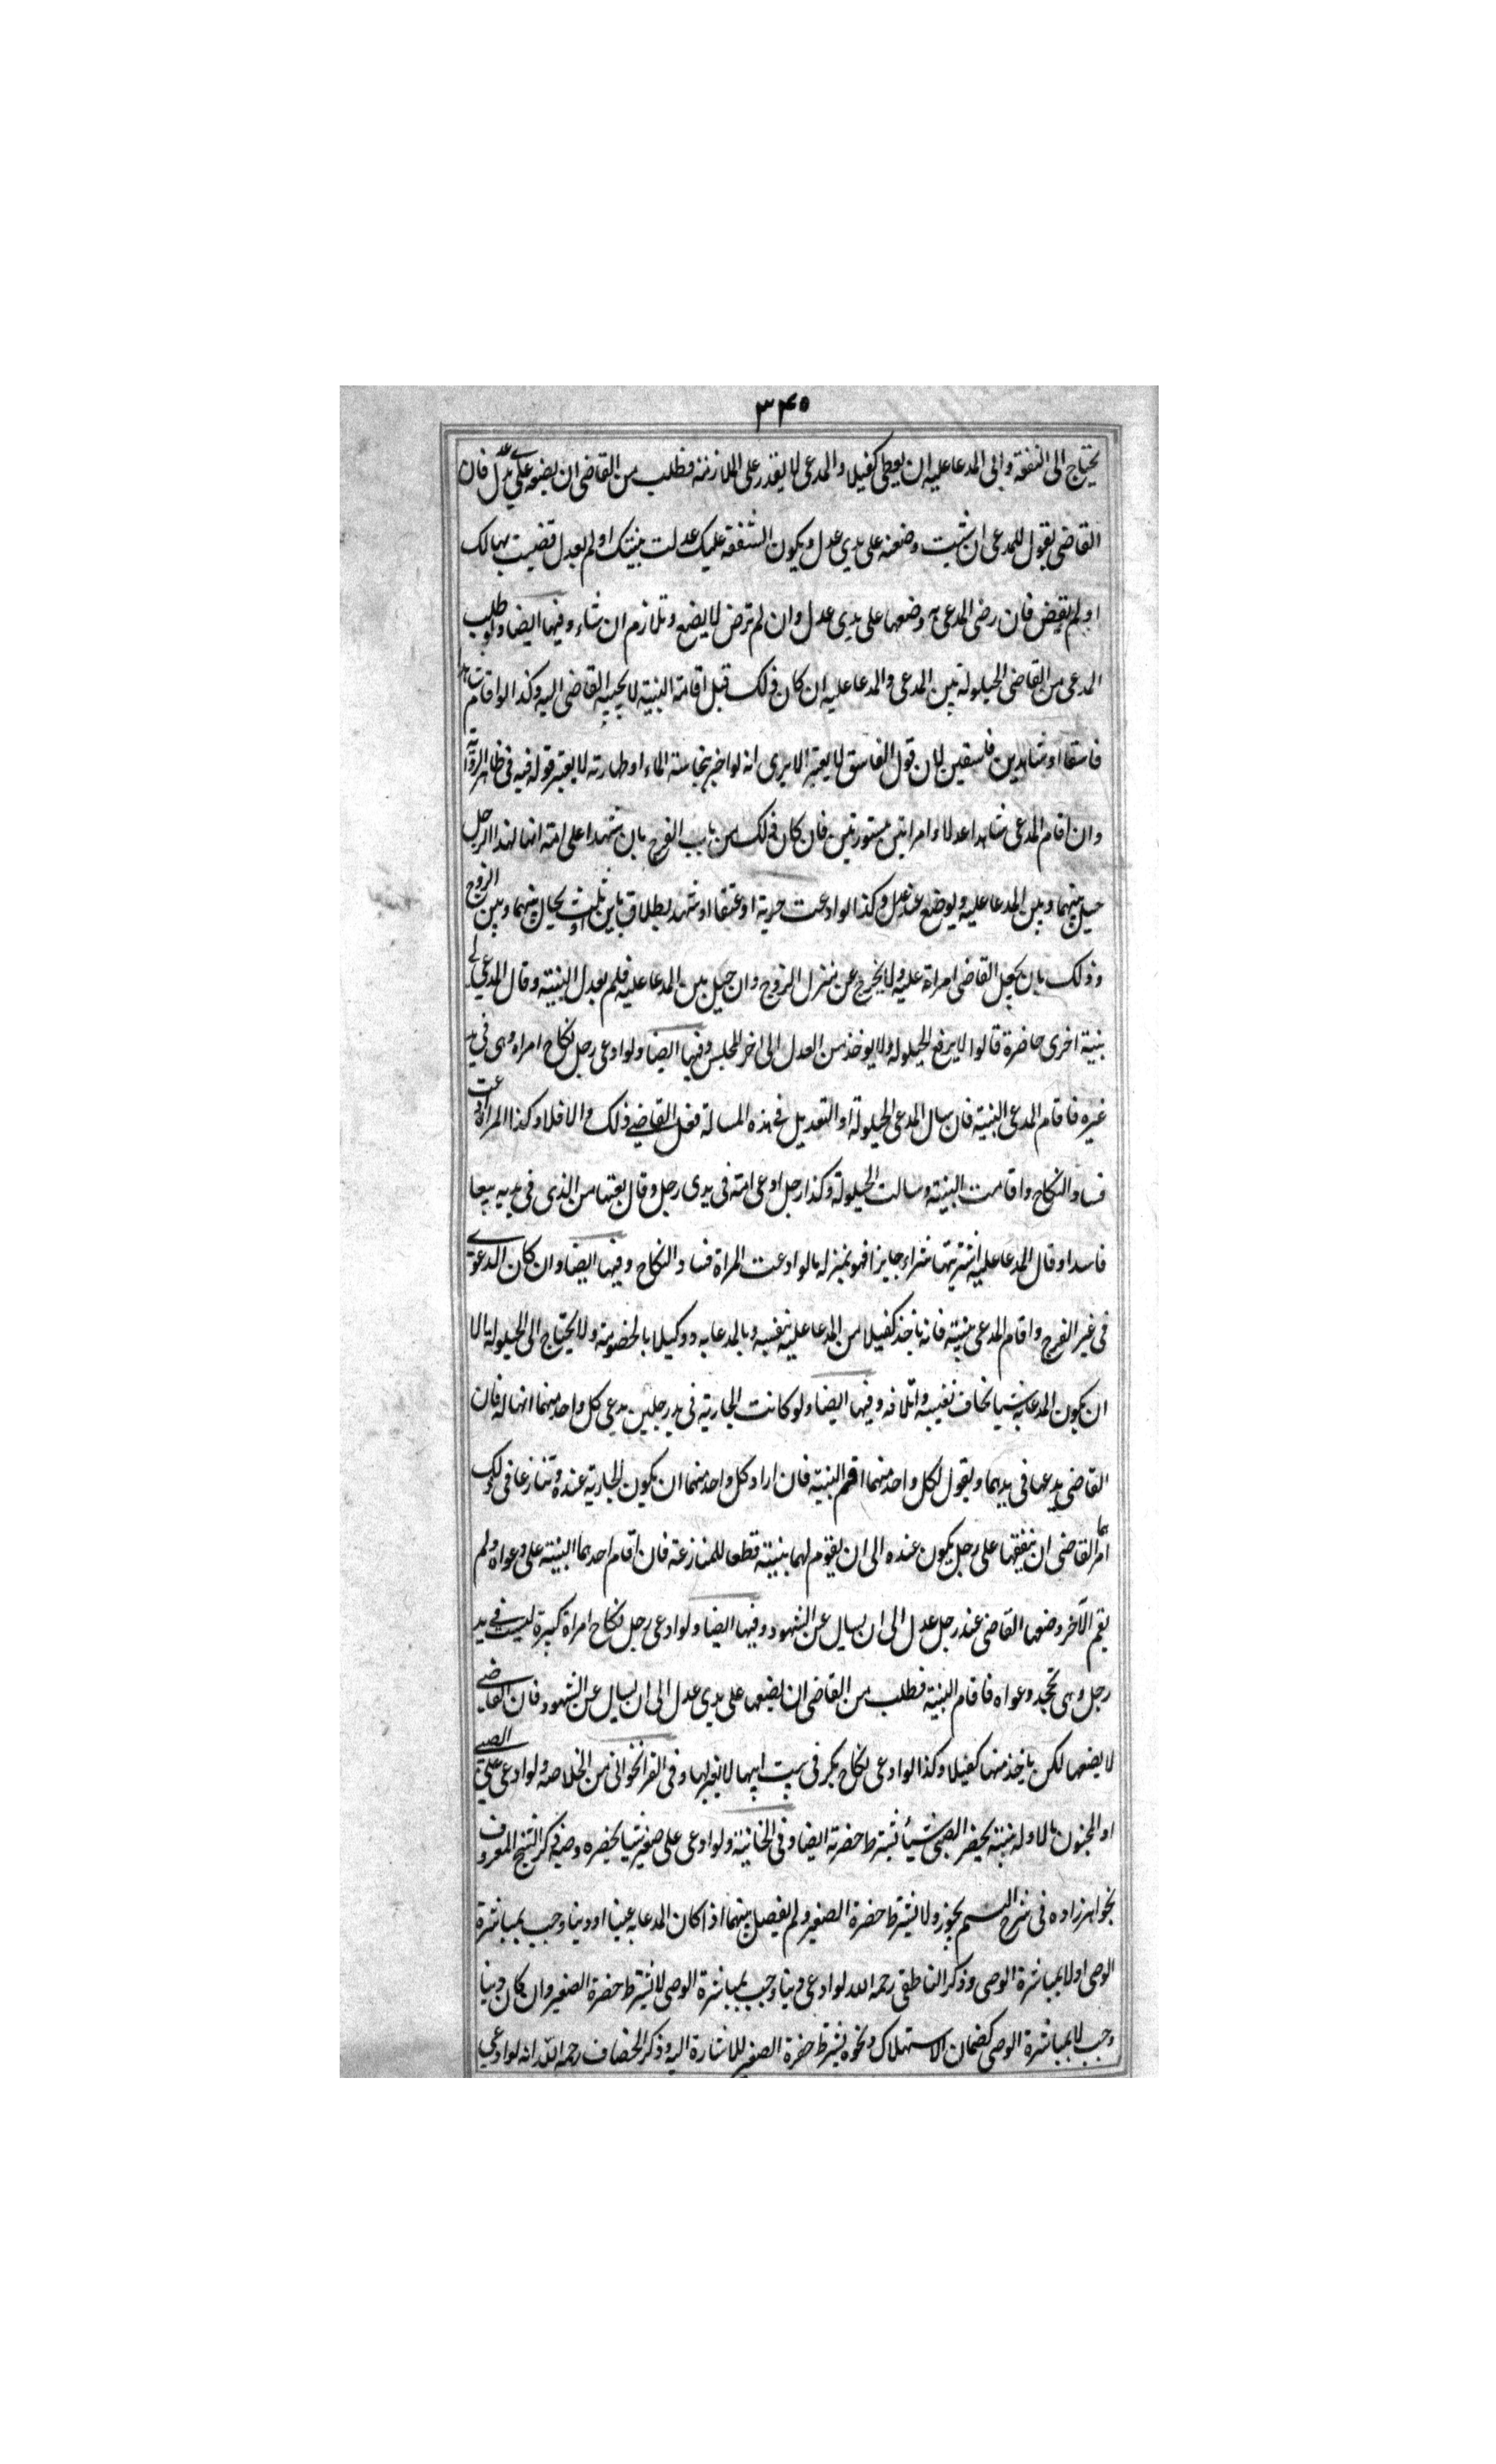 ٣٤٥
يحتاج الى النفقة وابى المدعا عليه ان يعطى كفيلا والمدعى لا يقدر على الملازمة فطلب من القاضى ان يضعه على يدى عدل فان
القاضى يقول للمدعى ان شئت وضعته على يدي عدل ويكون النفقة عليك عدلت بينتك او لم يعدل قضيت بها لك
او لم يقض فان رضى المدعى به وضعها على يدى عدل وان لم ترض لا يضع وتلازم ان شاء وفيها ايضا ولو طلب
المدعى من القاضى الحيلولة بين المدعى والمدعا عليه ان كان ذلك قبل اقامة البينة لا يجيبه القاضى اليه وكذا لو اقام شاهدا
فاسقا او شاهدين فاسقين لان قول الفاسق لا يعتبر الا يرى انه لو اخبر بنجاسة الماء او طهارته لا يعتبر قوله فيه فى ظاهر الرواية
وان اقام المدعى شاهدا عدلا او امراتين مستورتين فان كان ذلك من باب الفرج بان شهدا على امة انها لهذا الرجل
حيل بينهما وبين المدعا عليه ويوضع عند عدل وكذا لو ادعت حرية او عتقا او شهد بطلاق باين او ثلث يحال بينهما وبين الزوج
وذلك بان يجعل القاضى امراة عليه ولا يخرج عن منزل الزوج وان حيل بين المدعا عليه فلم يعدل البينة وقال المدعي لى
بينة اخرى حاضرة قالوا لا يرفع الحيلولة ولا يوخذ من العدل الى اخر المجلس وفيها ايضا ولو ادعى رجل نكاح امراة وهى فى يد
غيره فاقام المدعى البينة فان سال المدعى الحيلولة او التعديل فى هذه المسالة فعل القاضي ذلك والا فلا وكذا المراة ادعت
فساد النكاح واقامت البينة وسالت الحيلولة وكذا رجل ادعى امة فى يدى رجل وقال بعتها من الذى فى يديه بيعا
فاسدا وقال المدعا عليه اشتريتها شراء جايزا فهو بمنزلة ما لو ادعت المراة فساد النكاح وفيها ايضا وان كان الدعوى
فى غير الفرج واقام المدعى بينة فانه ياخذ كفيلا من المدعا عليه بنفسه وبالمدعا به ووكيلا بالخصومة ولا يحتاج الى الحيلولة الا
ان يكون المدعا به شيا يخاف تغيبه واتلافه وفيها ايضا ولو كانت الجارية فى يد رجلين يدعي كل واحد منهما انها له فان
القاضى يدعها فى يديهما ويقول لكل واحد منهما اقم البينة فان اراد كل واحد منهما ان يكون الجارية عنده وتنازعا فى ذلك
امرهما القاضى ان يتفقها على رجل يكون عنده الى ان يقوم لهما بينة قطعا للمنازعة فان اقام احدهما البينة على دعواه ولم
يقم الآخر وضعها القاضى عند رجل عدل الى ان يسال عن الشهود وفيها ايضا ولو ادعى رجل نكاح امراة كبيرة ليست في يد
رجل وهى تجحد دعواه فاقام البينة فطلب من القاضى ان يضعها على يدي عدل الى ان يسال عن الشهود فان القاضي
لا يضعها لكن ياخذ منها كفيلا وكذا لو ادعى نكاح بكر فى بيت ابيها لا يعزلها وفى القراخوانى من الخلاصة ولو ادعى على الصبي
او المجنون مالا وله بينة يحضر الصبى شيأ تشترط حضرته ايضا وفى الخانية ولو ادعى على صغير شيا يحضره وصيه ذكر الشيخ المعروف
بخواهر زاده فى شرح القسم يجوز ولا تشترط حضرة الصغير ولم يفصل بينهما اذا كان المدعا به عينا او دينا وجب بمباشرة
الوصى اولا بمباشرة الوصى وذكر الناطقى رحمه الله لو ادعى دينا وجب بمباشرة الوصى لا تشترط حضرة الصغير وان كان دينا
وجب لا بمباشرة الوصى كضمان الاستهلاك ونحوه يشترط حضرة الصغير للاشارة اليه وذكر الخصاف رحمه الله انه لو ادعي